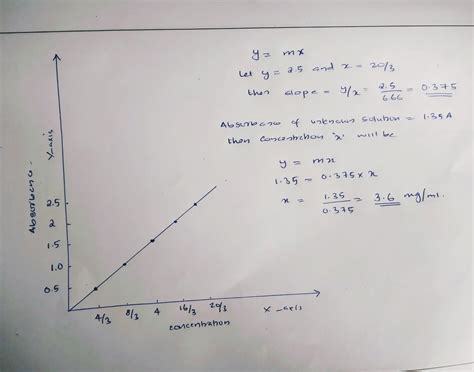 y = mx
Let y = 2.5 and x = 20/3
then slope = y/x = 2.5/6.66 = 0.375
Absorbance of unknown solution = 1.35 A
then concentration 'x' will be
y = mx
1.35 = 0.375 x x
x = 1.35/0.375 = 3.6 mg/ml.
Absorbance
Y-axis
2.5
2
1.5
1.0
0.5
4/3 8/3 4 16/3 20/3
X-axis
concentration